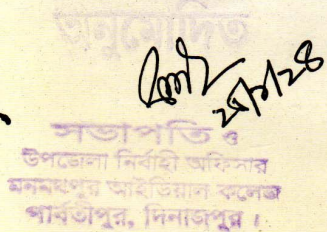 অনুমোদিত
২৮/১/২৪
সভাপতি ও
উপজেলা নির্বাহী অফিসার
মনমথপুর আইডিয়াল কলেজ
পার্বতীপুর, দিনাজপুর।